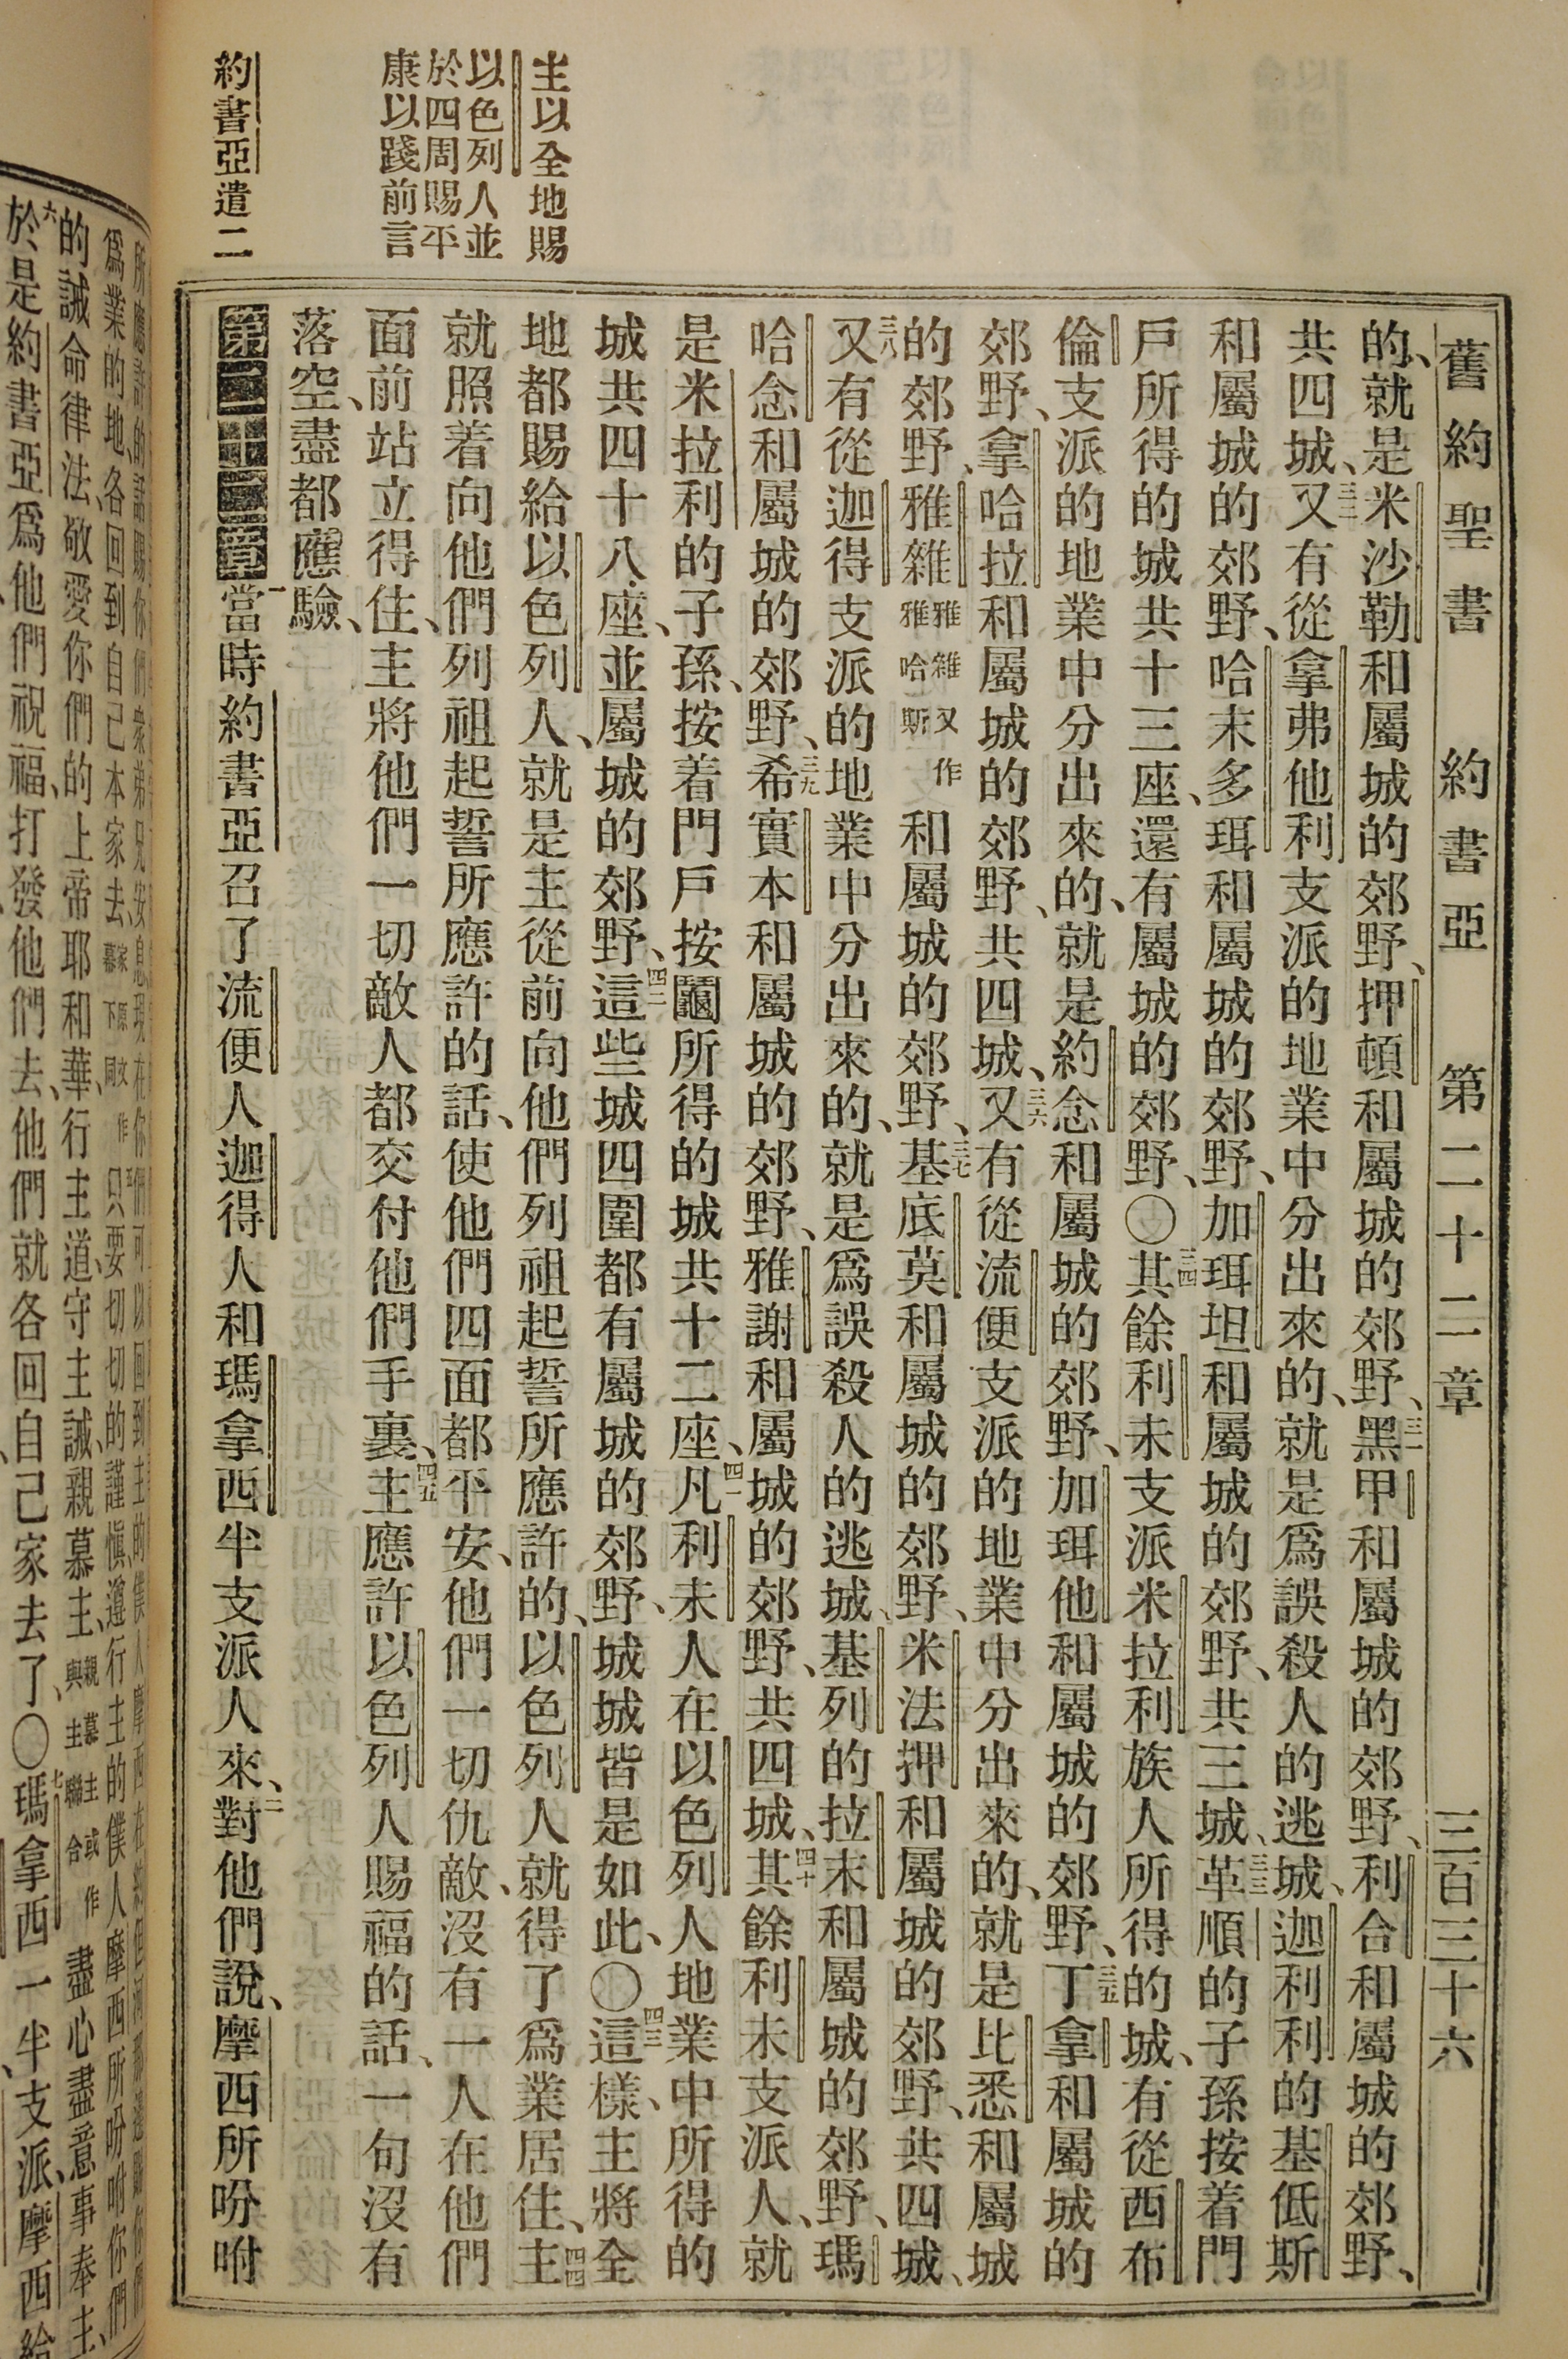 舊約聖書 約書亞 第二十二章 三百三十六
主以全地賜
以色列人並
於四周賜平
康以踐前言
約書亞遣二
的、就是米沙勒和屬城的郊野、押頓和屬城的郊野、三一黑甲和屬城的郊野、利合和屬城的郊野、
共四城、三二又有從拿弗他利支派的地業中分出來的、就是爲誤殺人的逃城、迦利利的基低斯
和屬城的郊野、哈末多珥和屬城的郊野、加珥坦和屬城的郊野、共三城、三三革順的子孫按着門
戶所得的城共十三座、還有屬城的郊野、〇三四其餘利未支派米拉利族人所得的城、有從西布
倫支派的地業中分出來的、就是約念和屬城的郊野、加珥他和屬城的郊野、三五丁拿和屬城的
郊野、拿哈拉和屬城的郊野、共四城、三六又有從流便支派的地業中分出來的、就是比悉和屬城
的郊野、雅雜雅雜又作雅哈斯和屬城的郊野、三七基底莫和屬城的郊野、米法押和屬城的郊野、共四城、
三八又有從迦得支派的地業中分出來的、就是爲誤殺人的逃城、基列的拉末和屬城的郊野、瑪
哈念和屬城的郊野、三九希實本和屬城的郊野、雅謝和屬城的郊野、共四城、四十其餘利未支派人、就
是米拉利的子孫、按着門戶按鬮所得的城共十二座、四一凡利未人在以色列人地業中所得的
城共四十八座、並屬城的郊野、四二這些城四圍都有屬城的郊野、城城皆是如此、〇四三這樣、主將全
地都賜給以色列人、就是主從前向他們列祖起誓所應許的、以色列人就得了爲業居住、四四主
就照着向他們列祖起誓所應許的話、使他們四面都平安、他們一切仇敵、沒有一人在他們
面前站立得住、主將他們一切敵人都交付他們手裏、四五主應許以色列人賜福的話、一句沒有
落空、盡都應驗、
第二十二章 一當時約書亞召了流便人迦得人和瑪拿西半支派人來、二對他們說、摩西所吩咐
的誡命律法、敬愛你們的上帝耶和華、行主道、守主誡、親慕主、親慕主或作與主聯合盡心盡意事奉主、
六於是約書亞爲他們祝福、打發他們去、他們就各回自己家去了、〇七瑪拿西一半支派、摩西給